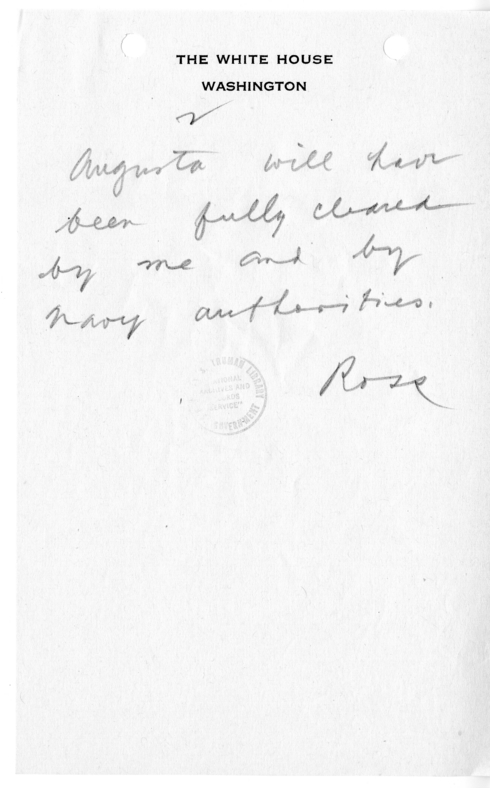 THE WHITE HOUSE
WASHINGTON
2
Augusta will have
been fully cleared
by me and by
Navy authorities.
Ross
TRUMAN LIBRARY
NATIONAL
ARCHIVES AND
SERVICE
GOVERNMENT